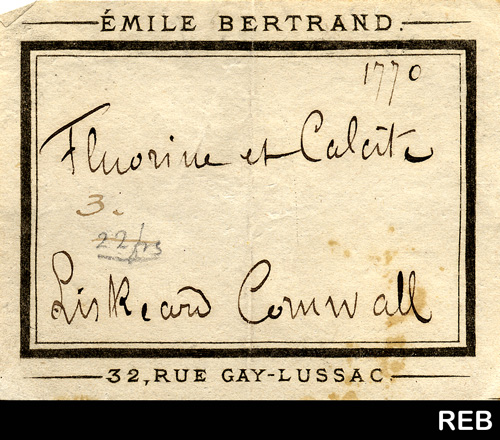 ÉMILE BERTRAND.
1770
Fluorine et Calcite
3.
22frs
Liskeard Cornwall
32, RUE GAY-LUSSAC.
REB